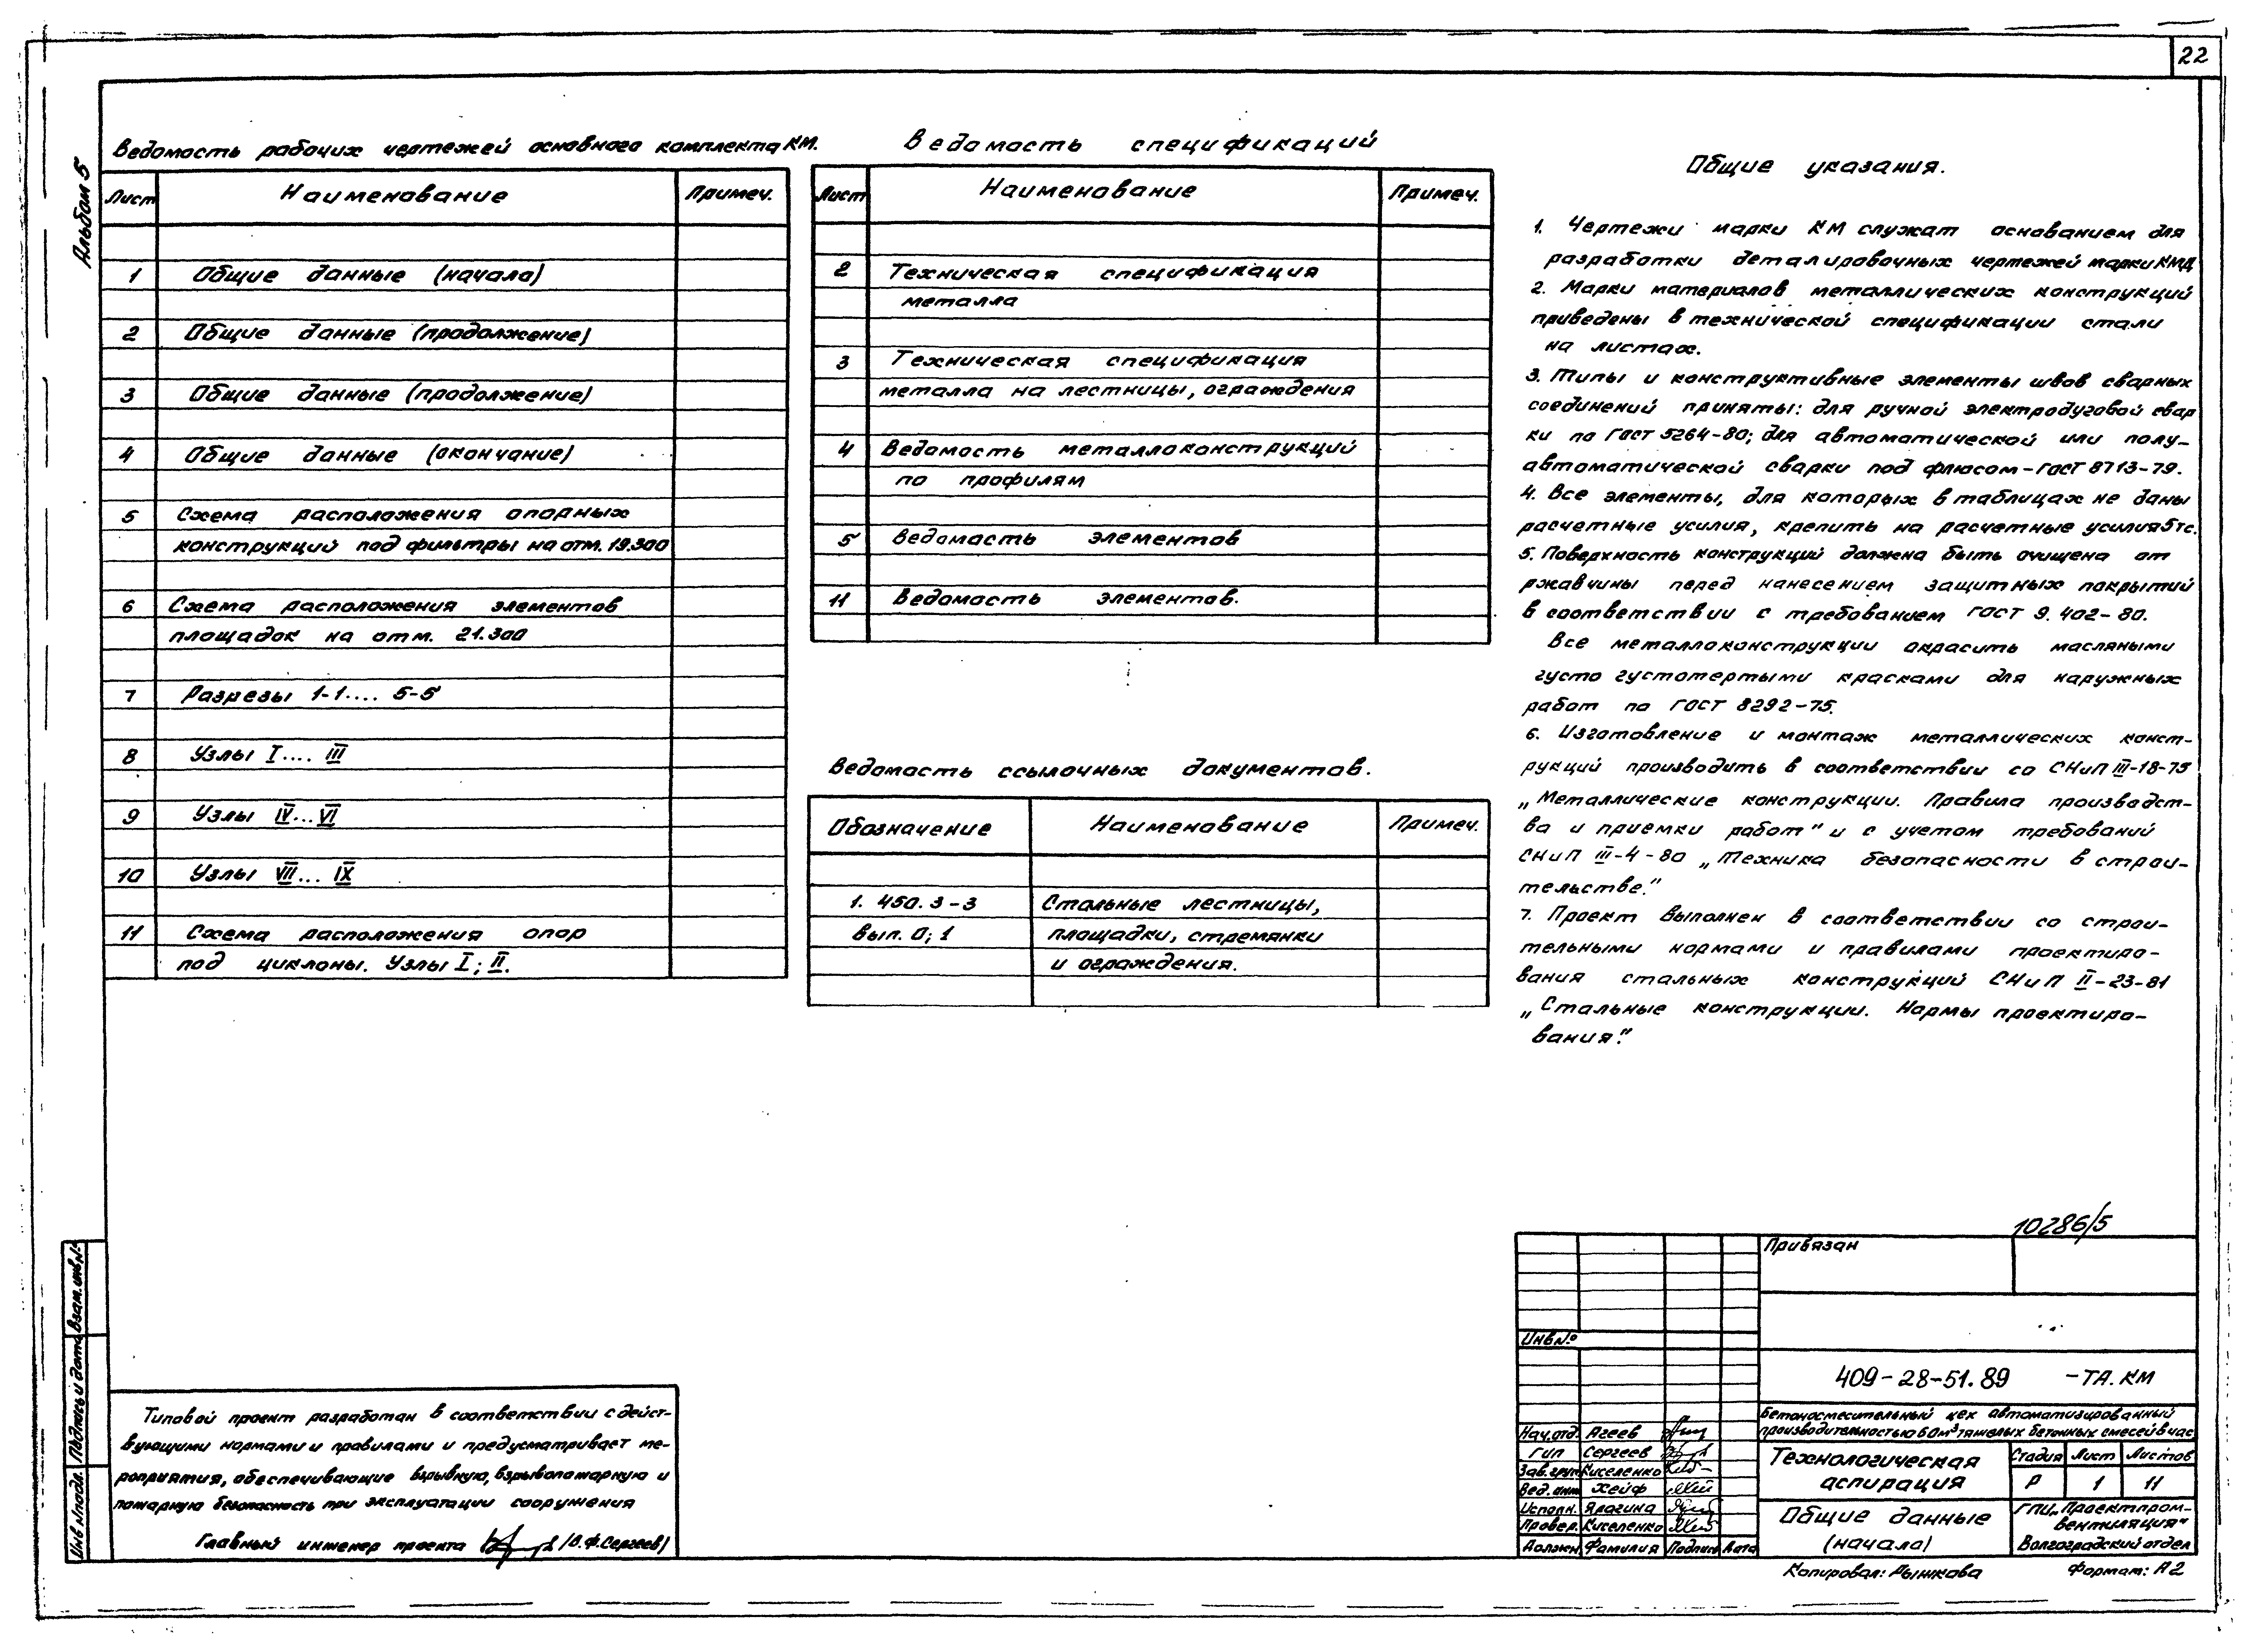 22
Альбом 5
Ведомость рабочих чертежей основного комплекта КМ.
Лист Наименование Примеч.
1 Общие данные (начала)
2 Общие данные (продолжение)
3 Общие данные (продолжение)
4 Общие данные (окончание)
5 Схема расположения опорных
конструкций под фильтры на отм. 19.300
6 Схема расположения элементов
площадок на отм. 21.300
7 Разрезы 1-1.... 5-5
8 Узлы I.... III
9 Узлы IV...VI
10 Узлы VII... IX
11 Схема расположения опор
под циклоны. Узлы I; II.
Ведомость спецификаций
Лист Наименование Примеч.
2 Техническая спецификация
металла
3 Техническая спецификация
металла на лестницы, ограждения
4 Ведомость металлоконструкций
по профилям
5 Ведомость элементов
11 Ведомость элементов.
Ведомость ссылочных документов.
Обозначение Наименование Примеч.
1. 450. 3-3 Стальные лестницы,
вып. 0; 1 площадки, стремянки
и ограждения.
Общие указания.
1. Чертежи марки КМ служат основанием для
разработки деталировочных чертежей марки КМД
2. Марки материалов металлических конструкций
приведены в технической спецификации стали
на листах.
3. Типы и конструктивные элементы швов сварных
соединений приняты: для ручной электродуговой свар
ки по ГОСТ 5264-80; для автоматической или полу-
автоматической сварки под флюсом-ГОСТ 8713-79.
4. Все элементы, для которых в таблицах не даны
расчетные усилия, крепить на расчетные усилия 5тс.
5. Поверхность конструкций должна быть очищена от
ржавчины перед нанесением защитных покрытий
в соответствии с требованием ГОСТ 9. 402-80.
Все металлоконструкции окрасить масляными
густо густотертыми красками для наружных
работ по ГОСТ 8292-75.
6. Изготовление и монтаж металлических конст-
рукций производить в соответствии со СНиП III-18-75
„Металлические конструкции. Правила производст-
ва и приемки работ" и с учетом требований
СНиП III-4-80 „Техника безопасности в строи-
тельстве."
7. Проект выполнен в соответствии со строи-
тельными нормами и правилами проектиро-
вания стальных конструкций СНиП II-23-81
„Стальные конструкции. Нормы проектиро-
вания."
10286/5
Привязан
Инв №
409-28-51.89 -ТА.КМ
Бетоносмесительный цех автоматизированный
производительностью 60м³ тяжелых бетонных смесей в час
Нач.отд. Агеев
ГИП Сергеев
Зав.груп Киселенко
Вед.инж Хейф
Исполн. Ярагина
Провер. Киселенко
Должн Фамилия Подпись Дата
Технологическая
аспирация
Стадия Лист Листов
Р 1 11
Общие данные
(начала)
ГПИ„Проектпром-
вентиляция"
Волгоградский отдел
Копировал: Рыжкова Формат: А2
Типовой проект разработан в соответствии с дейст-
вующими нормами и правилами и предусматривает ме-
роприятия, обеспечивающие взрывную, взрывопожарную и
пожарную безопасность при эксплуатации сооружения
Главный инженер проекта (В.Ф.Сергеев)
Взам. инв.№
Подпись и дата
Инв №подл.